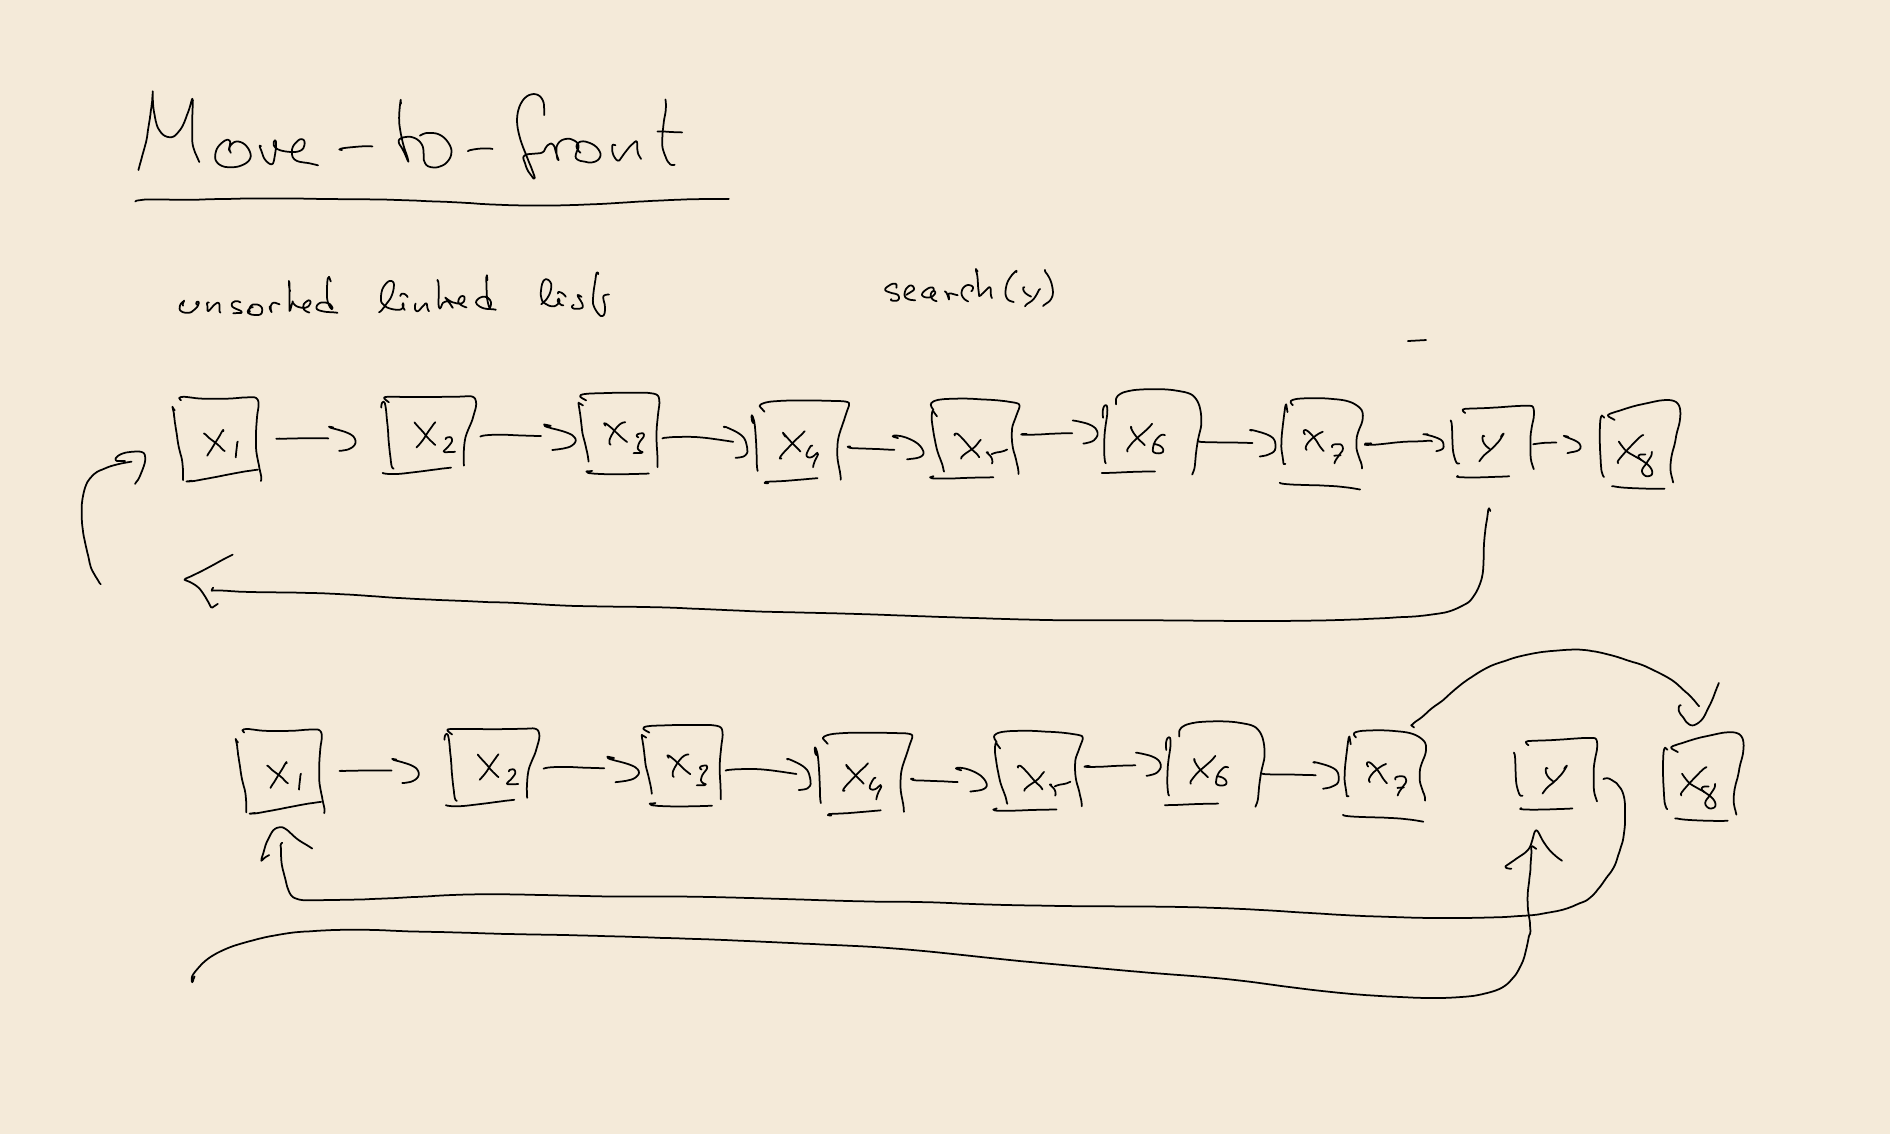 Move-to-front
unsorted linked lists search(y)
x1 x2 x3 x4 x5 x6 x7 y x8
x1 x2 x3 x4 x5 x6 x7 y x8